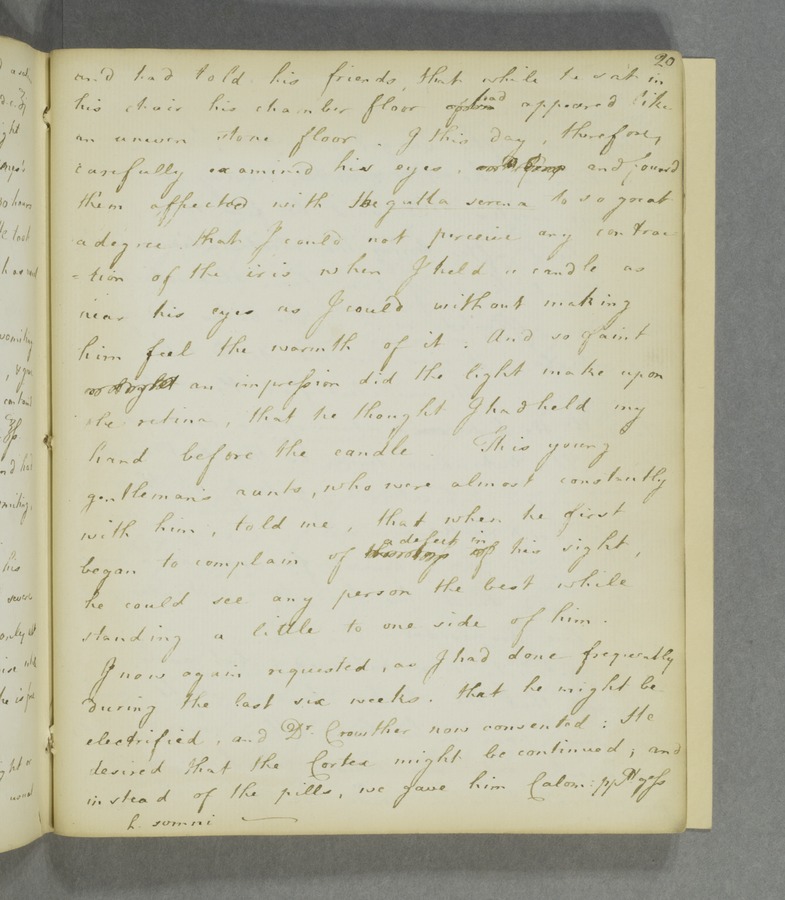 20
and had told his friends, that while he sat in
his chair his chamber floor had appeared like
an uneven stone floor. I this day, therefore,
carefully examined his eyes, and found
them affected with the gutta serena to so great
a degree that I could not perceive any contrac
=tion of the iris when I held a candle as
near his eyes as I could without making
him feel the warmth of it. And so faint
an impression did the light make upon
the retina, that he thought I had held my
hand before the candle. This young
gentleman's aunts, who were almost constantly
with him, told me, that when he first
began to complain of a defect in his sight,
he could see any person the best while
standing a little to one side of him.
I now again requested, as I had done frequently
during the last six weeks, that he might be
electrified, and Dr. Crowther now consented: He
desired that the Cortex might be continued; and
instead of the pills, we gave him Calom: pp
h. somni